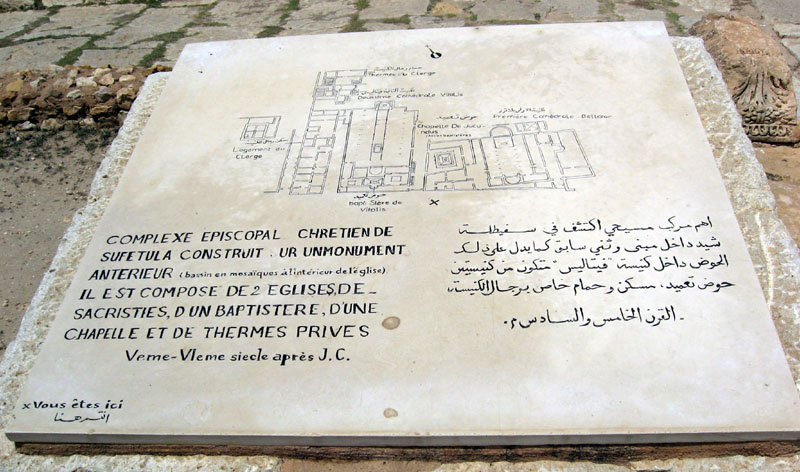 حمام رجال الكنيسة
Thermes du Clergé
Deuxième Cathédrale Vitalis
حوض تعميد
Chapelle De Jucundus
Première Cathédrale Bellator
Logement du
Clergé
حوض تعميد
Baptistère de
Vitalis
x
COMPLEXE EPISCOPAL CHRETIEN DE
SUFETULA CONSTRUIT UR UNMONUMENT
ANTERIEUR (bassin en mosaïques à l'intérieur de l'église).
IL EST COMPOSE DE 2 EGLISES, DE_
SACRISTIES, D'UN BAPTISTERE, D'UNE
CHAPELLE ET DE THERMES PRIVES
Veme-VIeme siecle après J.C.
اهم مركب مسيحي اكتشف في سفيطلة
شيد داخل مبنى وثني سابق كما يدل على ذلك
الحوض داخل كنيسة "فيتاليس" متكون من كنيستين
حوض تعميد، مسكن وحمام خاص برجال الكنيسة
_ القرن الخامس والسادس م.
x Vous êtes ici
انتم هنا